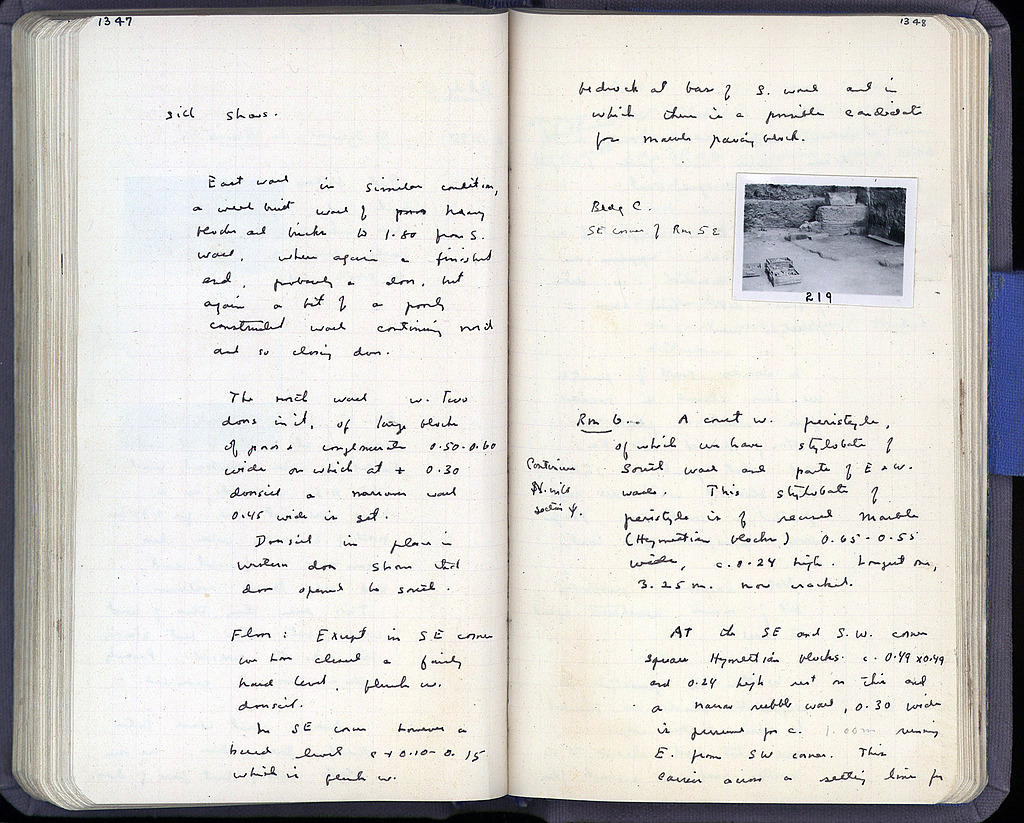 1347
sill shows.
East wall in similar condition,
a well built wall of poros
blocks and bricks to 1.80 from S.
wall, when again a finished
end, probably a door, but
again a bit of a poorly
constructed wall continuing north
and so closing door.
The north wall w. two
doors in it, of large blocks
of poros & conglomerate 0.50-0.60
wide on which at + 0.30
doorsill a narrower wall
0.45 wide is set.
Doorsill in place in
western door shows that
door opened to south.
Floor: Except in SE corner
we have cleared a fairly
hard level, flush w.
doorsill.
In SE corner however a
hard level c + 0.10-0.15
which is flush w.
1348
bedrock at base of S. wall and in
which there is a possible candidate
for marble paving block.
Bldg C.
SE corner of Rm 5 E
219
Rm 6.. A court w. peristyle,
of which we have stylobate of
South wall and parts of E & W.
walls. This stylobate of
peristyle is of reused marble
(Hymettian blocks) 0.65-0.55
wide, c. 0.24 high. Longest one,
3.25 m. now cracked.
Continues
in
section Ψ.
At the SE and S.W. corner
square Hymettian blocks c. 0.49 x 0.49
and 0.24 high rest on this and
a narrow rubble wall, 0.30 wide
is preserved for c. 1.00m running
E. from SW corner. This
carries across a setting line for